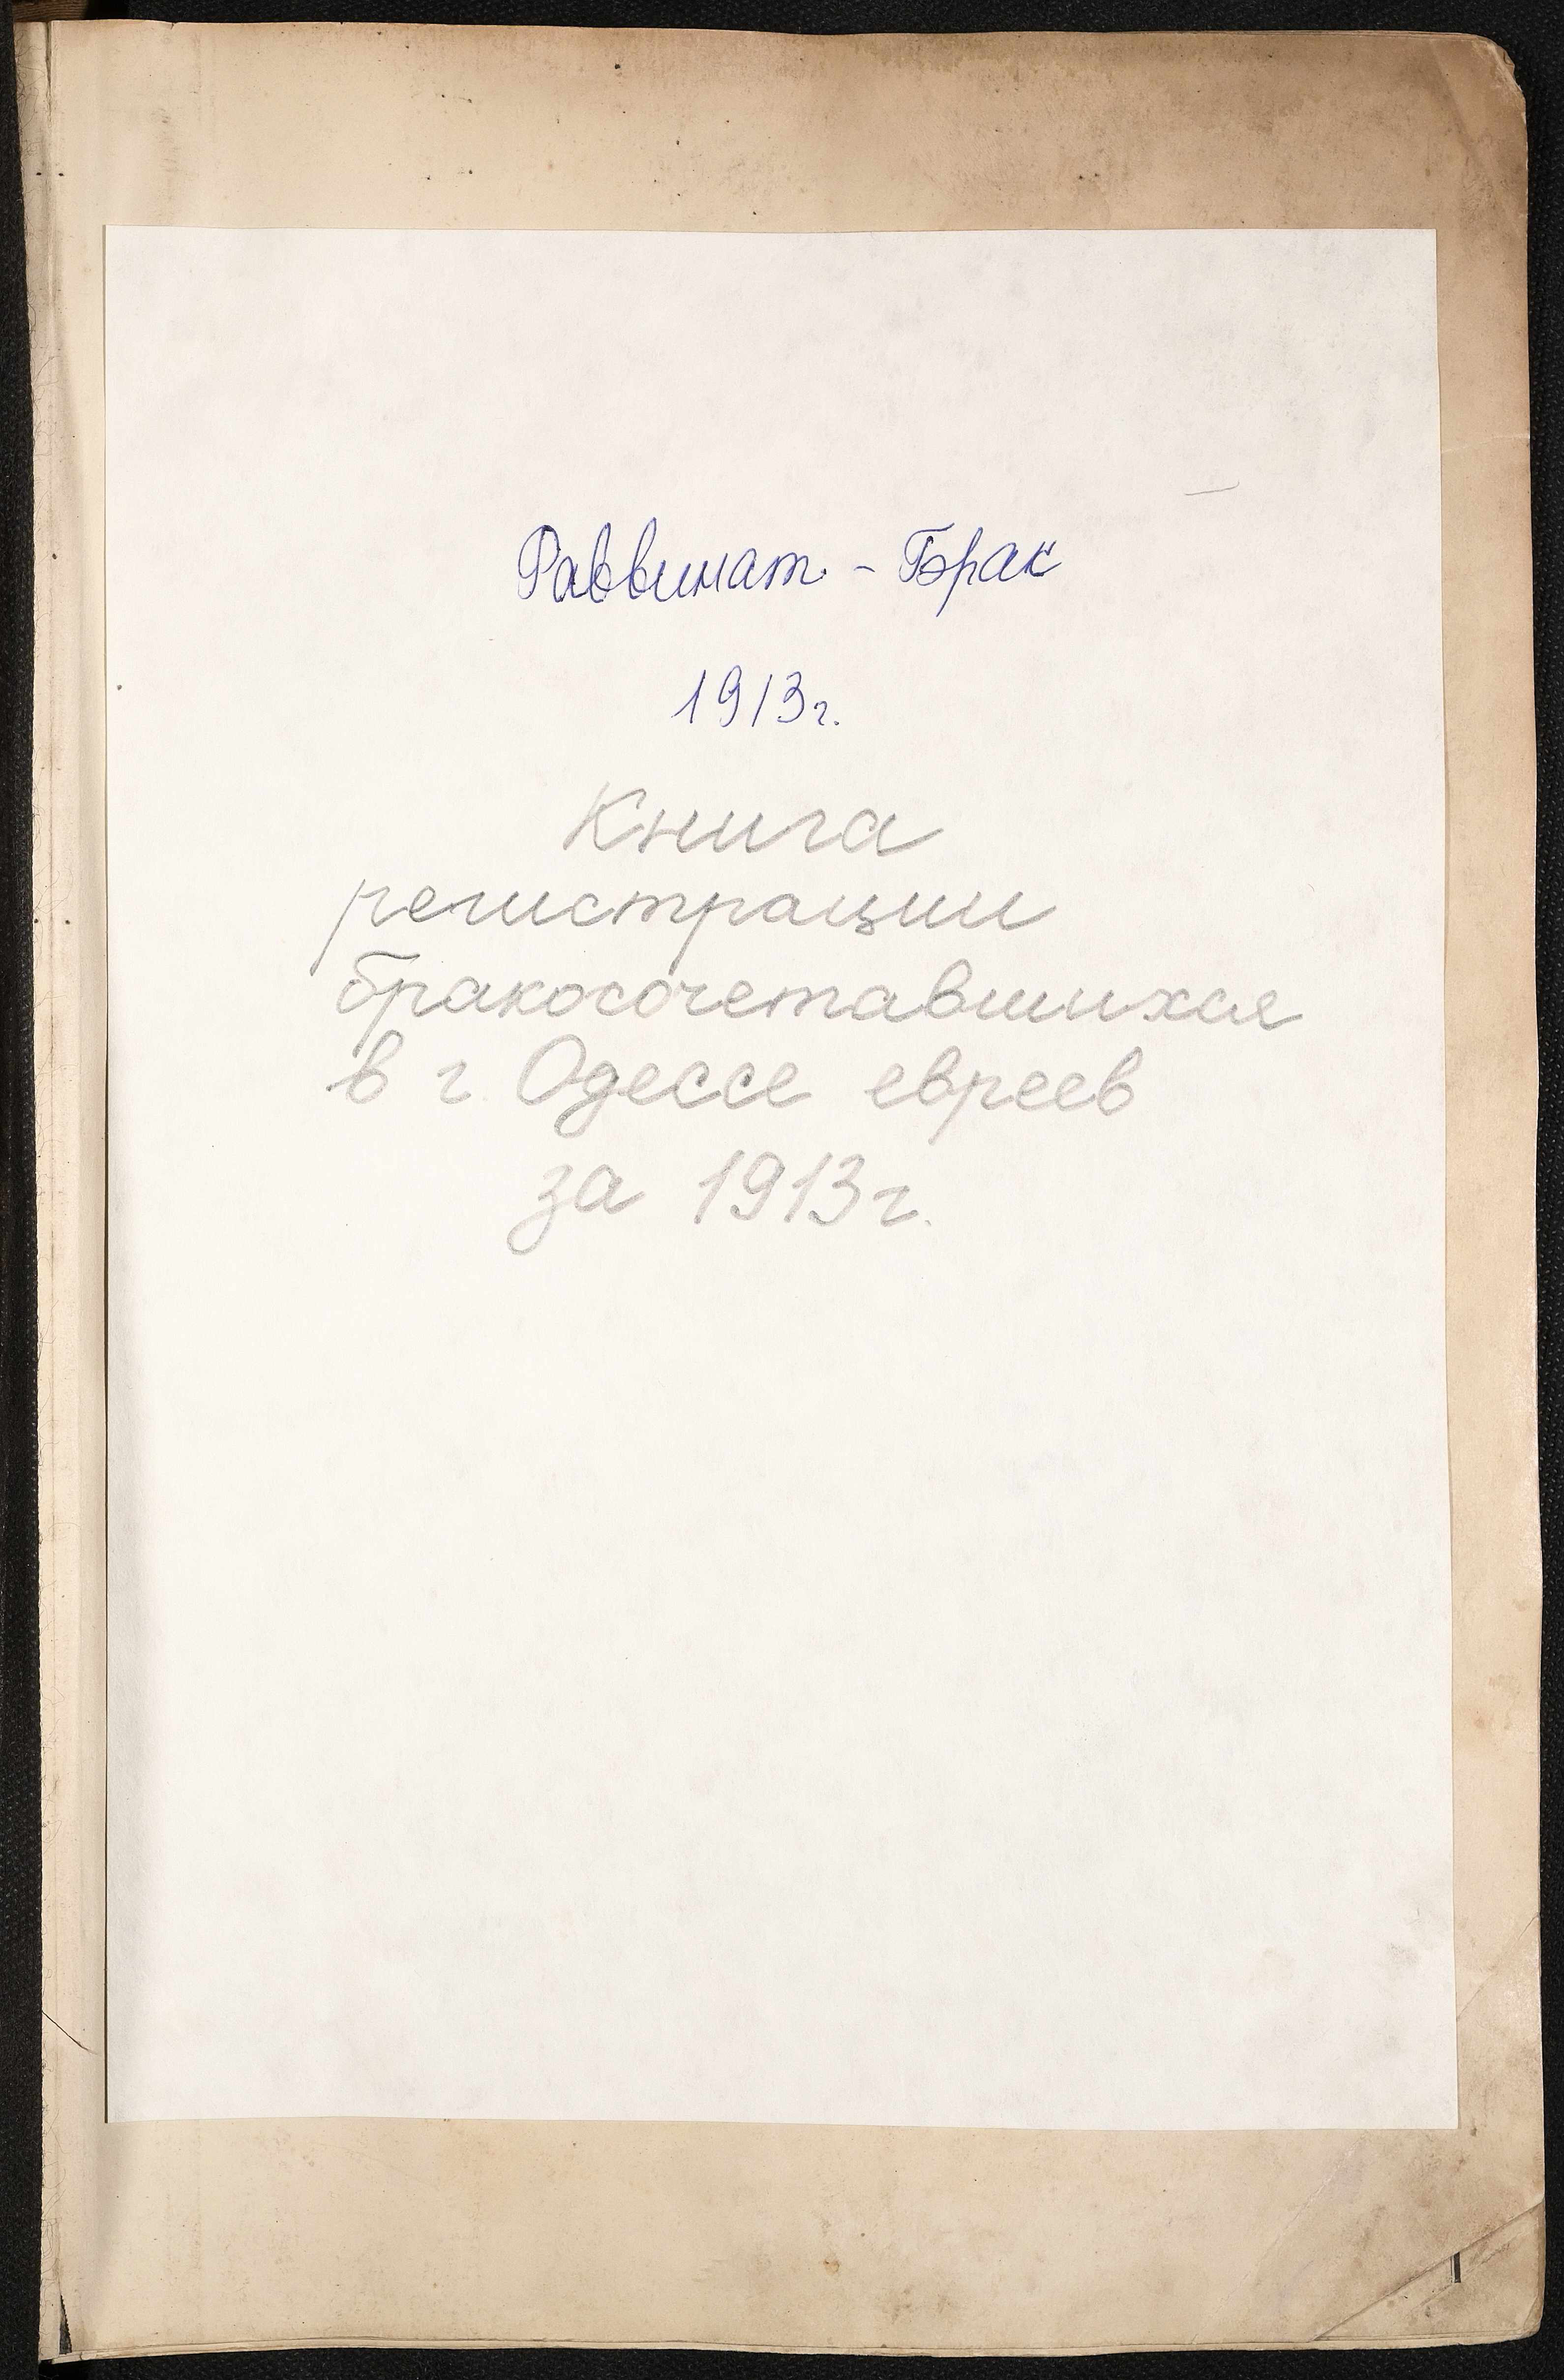 Раввинат - Брак
1913г.
Книга
регистрации
бракосочетавшихся
в г. Одессе евреев
за 1913г.